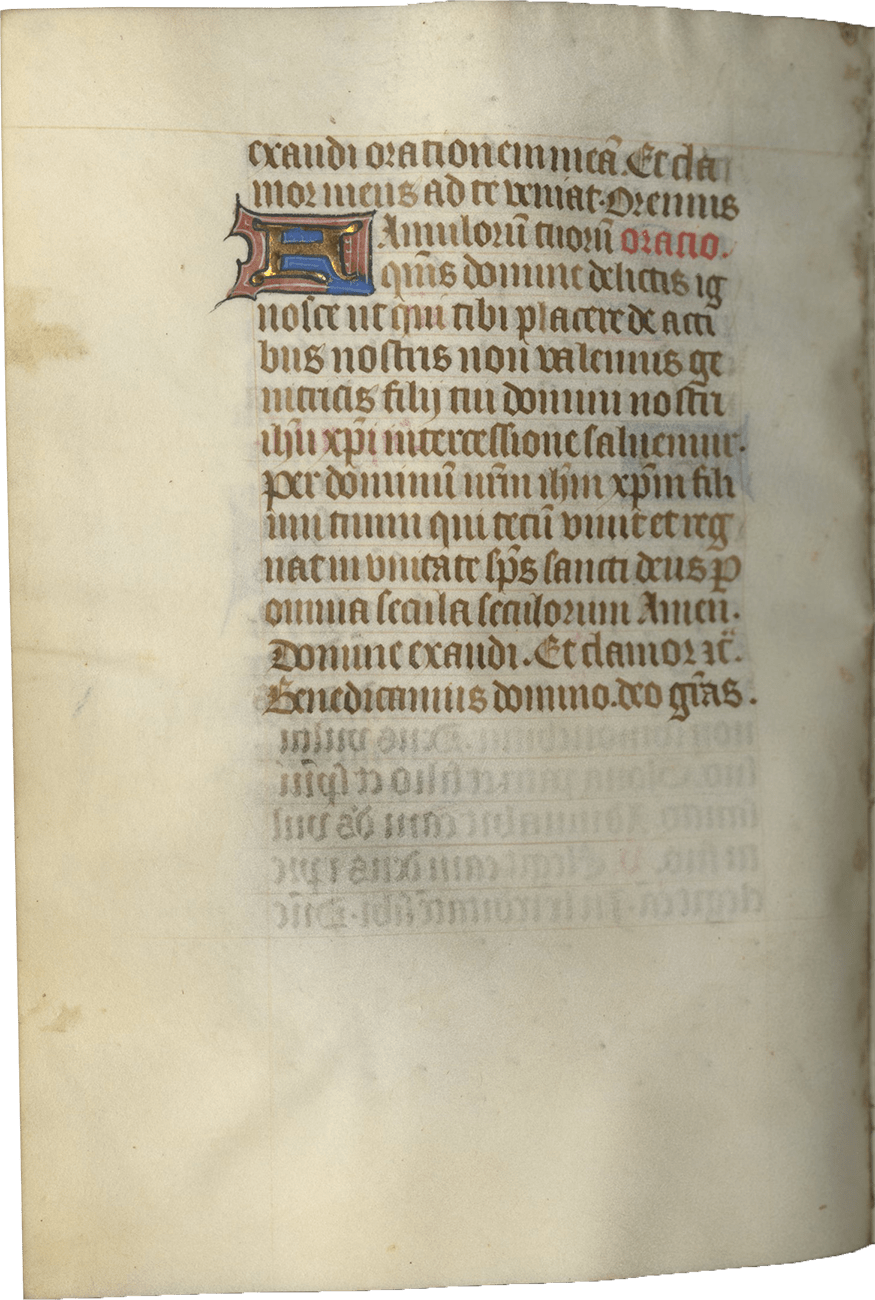 exaudi orationem meā. Et cla
mor meus ad te veniat. Oremus
Famulorū tuorū oratio.
qm̄s domine delictis ig
nosce ut qui tibi placere de acti
bus nostris non valemus ge
nitricis filij tui domini nostri
ihū xp̄i intercessione saluemur.
per dominū nr̄m ihm̄ xp̄m fili
um tuum qui tecū viuit et reg
nat in vnitate sp̄s sancti deus ꝑ
omnia secula seculorum Amen.
Domine exaudi. Et clamor ꝛc̄.
Benedicamus domino. deo gr̄as.